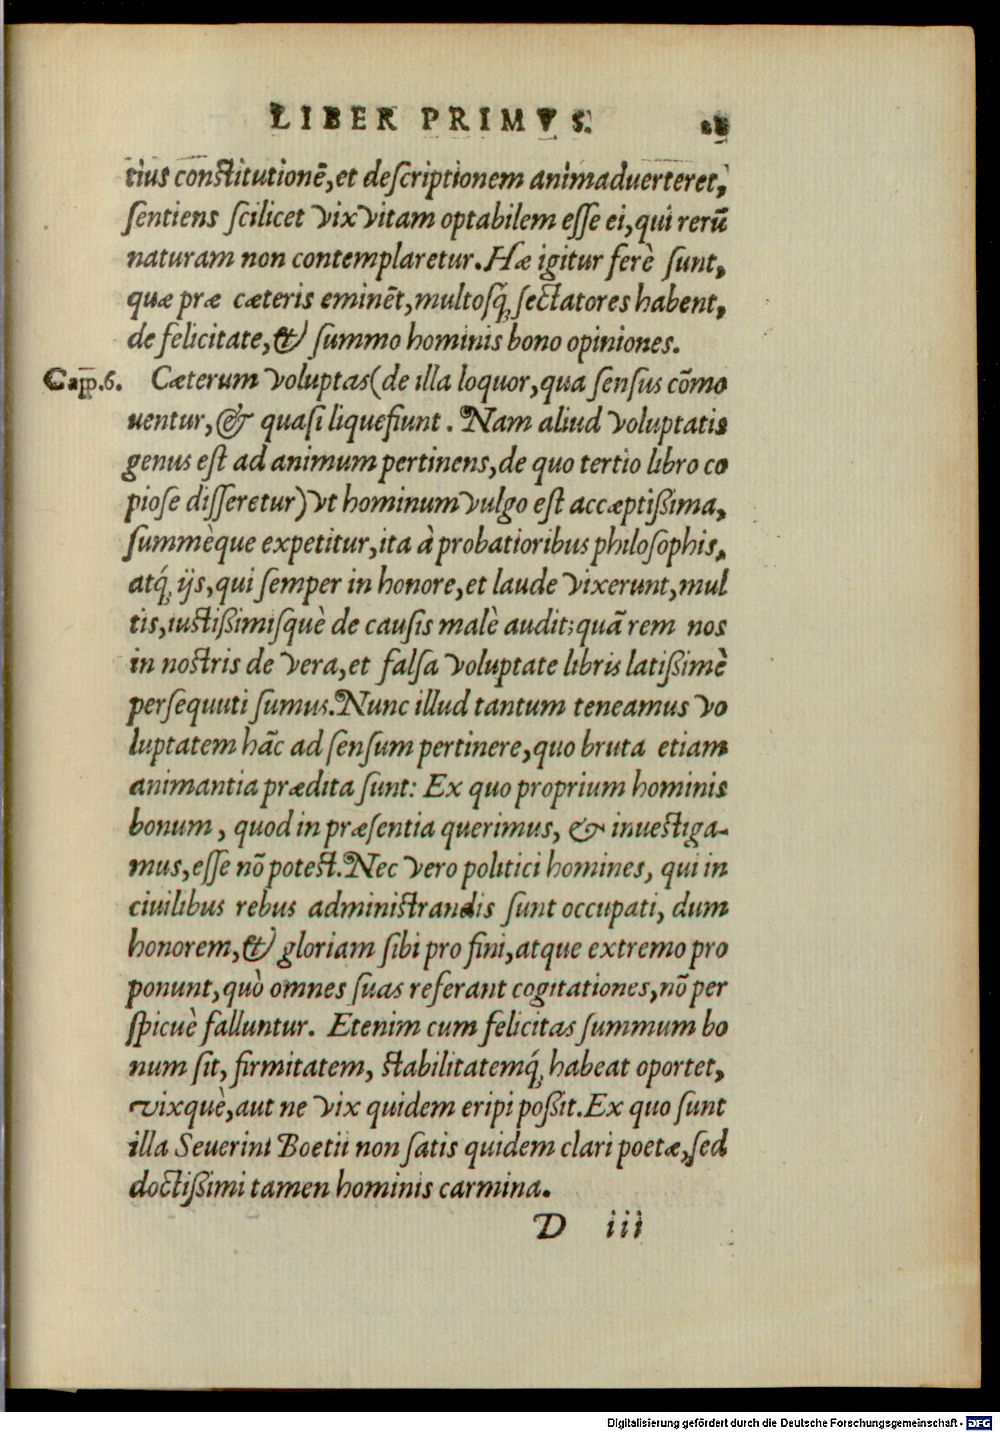 LIBER PRIMVS.
tius constitutionē, et descriptionem animaduerteret,
sentiens scilicet vix vitam optabilem esse ei, qui rerū
naturam non contemplaretur. Hæ igitur ferè sunt,
quæ præ cæteris eminēt, multosq́; sectatores habent,
de felicitate, & summo hominis bono opiniones.
Capp.6. Cæterum voluptas (de illa loquor, qua sensus cōmo
uentur, & quasi liquefiunt. Nam aliud voluptatis
genus est ad animum pertinens, de quo tertio libro co
piose disseretur) vt hominum vulgo est accæptißima,
summèque expetitur, ita à probatioribus philosophis,
atq́; ijs, qui semper in honore, et laude vixerunt, mul
tis, iustißimisquè de causis malè audit: quā rem nos
in nostris de vera, et falsa voluptate libris latißimè
persequuti sumus. Nunc illud tantum teneamus vo
luptatem hāc ad sensum pertinere, quo bruta etiam
animantia prædita sunt: Ex quo proprium hominis
bonum, quod in præsentia querimus, & inuestiga-
mus, esse nō potest. Nec vero politici homines, qui in
ciuilibus rebus administrandis sunt occupati, dum
honorem, & gloriam sibi pro fini, atque extremo pro
ponunt, quò omnes suas referant cogitationes, nō per
spicuè falluntur. Etenim cum felicitas summum bo
num sit, firmitatem, stabilitatemq́; habeat oportet,
vixquè, aut ne vix quidem eripi poßit. Ex quo sunt
illa Seuerini Boetii non satis quidem clari poetæ, sed
doctißimi tamen hominis carmina.
D iii
Digitalisierung gefördert durch die Deutsche Forschungsgemeinschaft - DFG